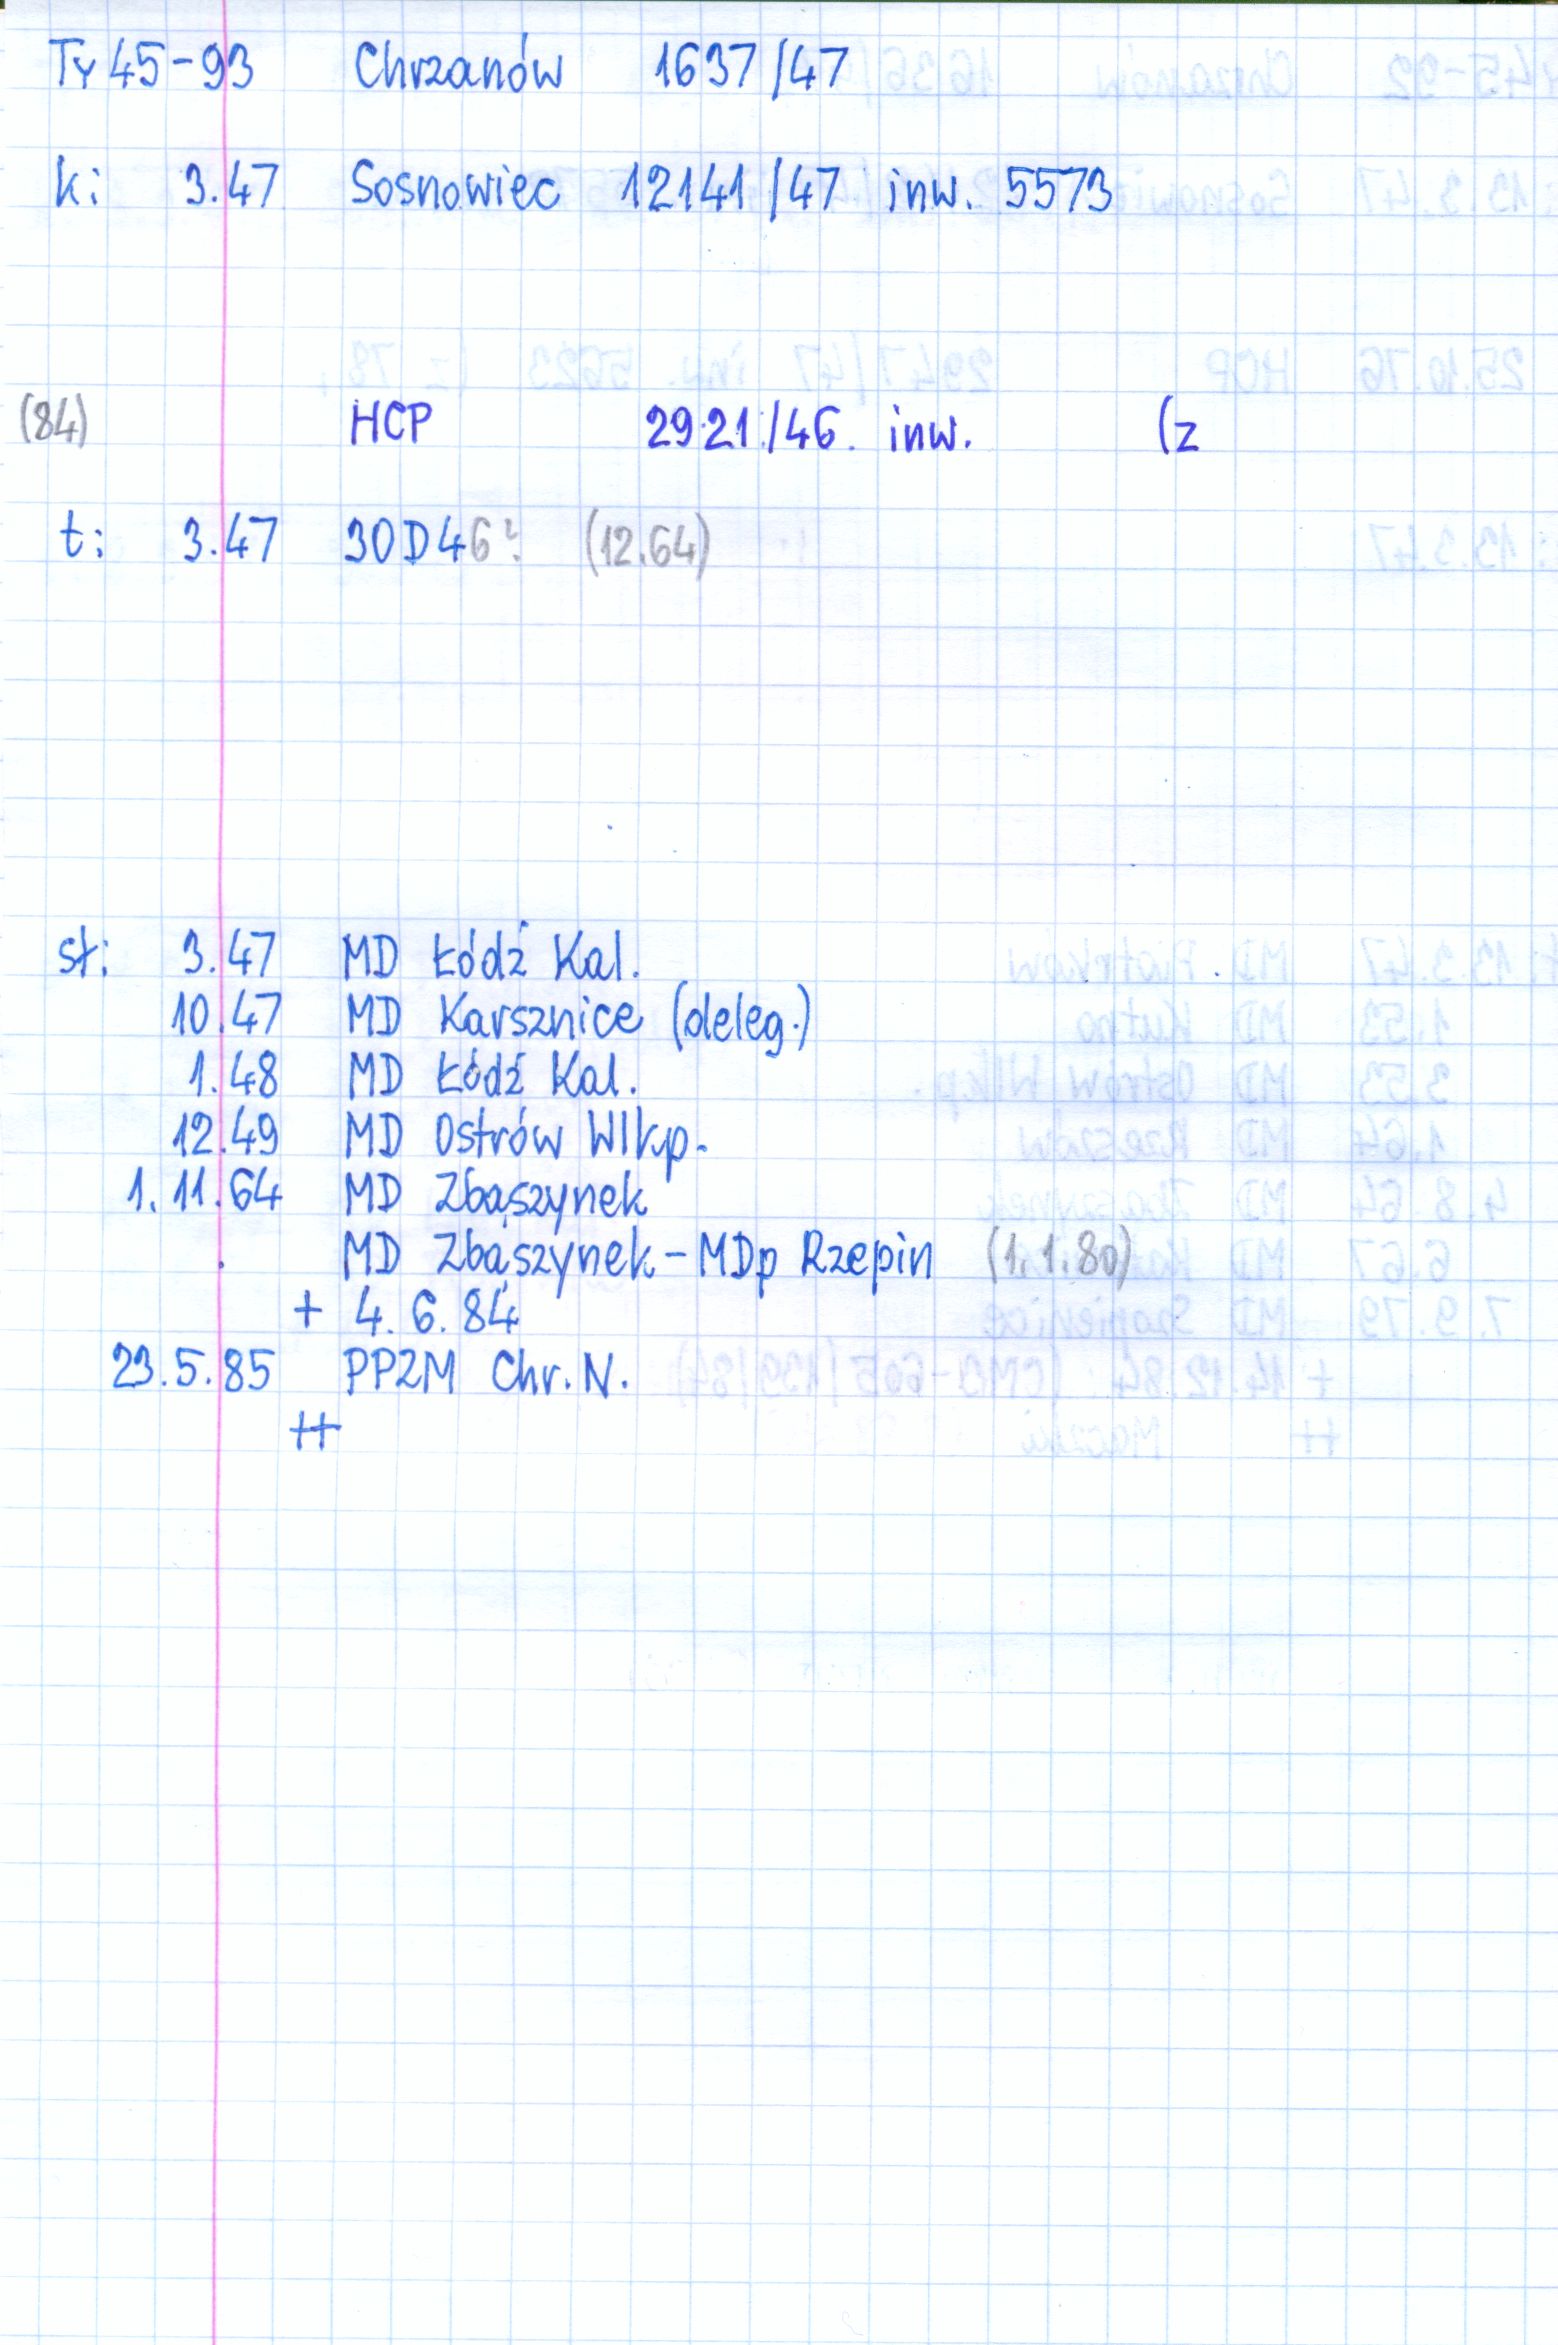 Ty45-93 Chrzanów 1637/47
k: 3.47 Sosnowiec 12141/47 inw. 5573
(84) HCP 2921/46. inw. (z
t: 3.47 30D46? (12.64)
st: 3.47 MD Łódź Kal.
10.47 MD Karsznice (deleg.)
1.48 MD Łódź Kal.
12.49 MD Ostrów Wlkp.
1.11.64 MD Zbąszynek
. MD Zbąszynek-MDp Rzepin (1.1.80)
+ 4.6.84
23.5.85 PPZM Chr.N.
++